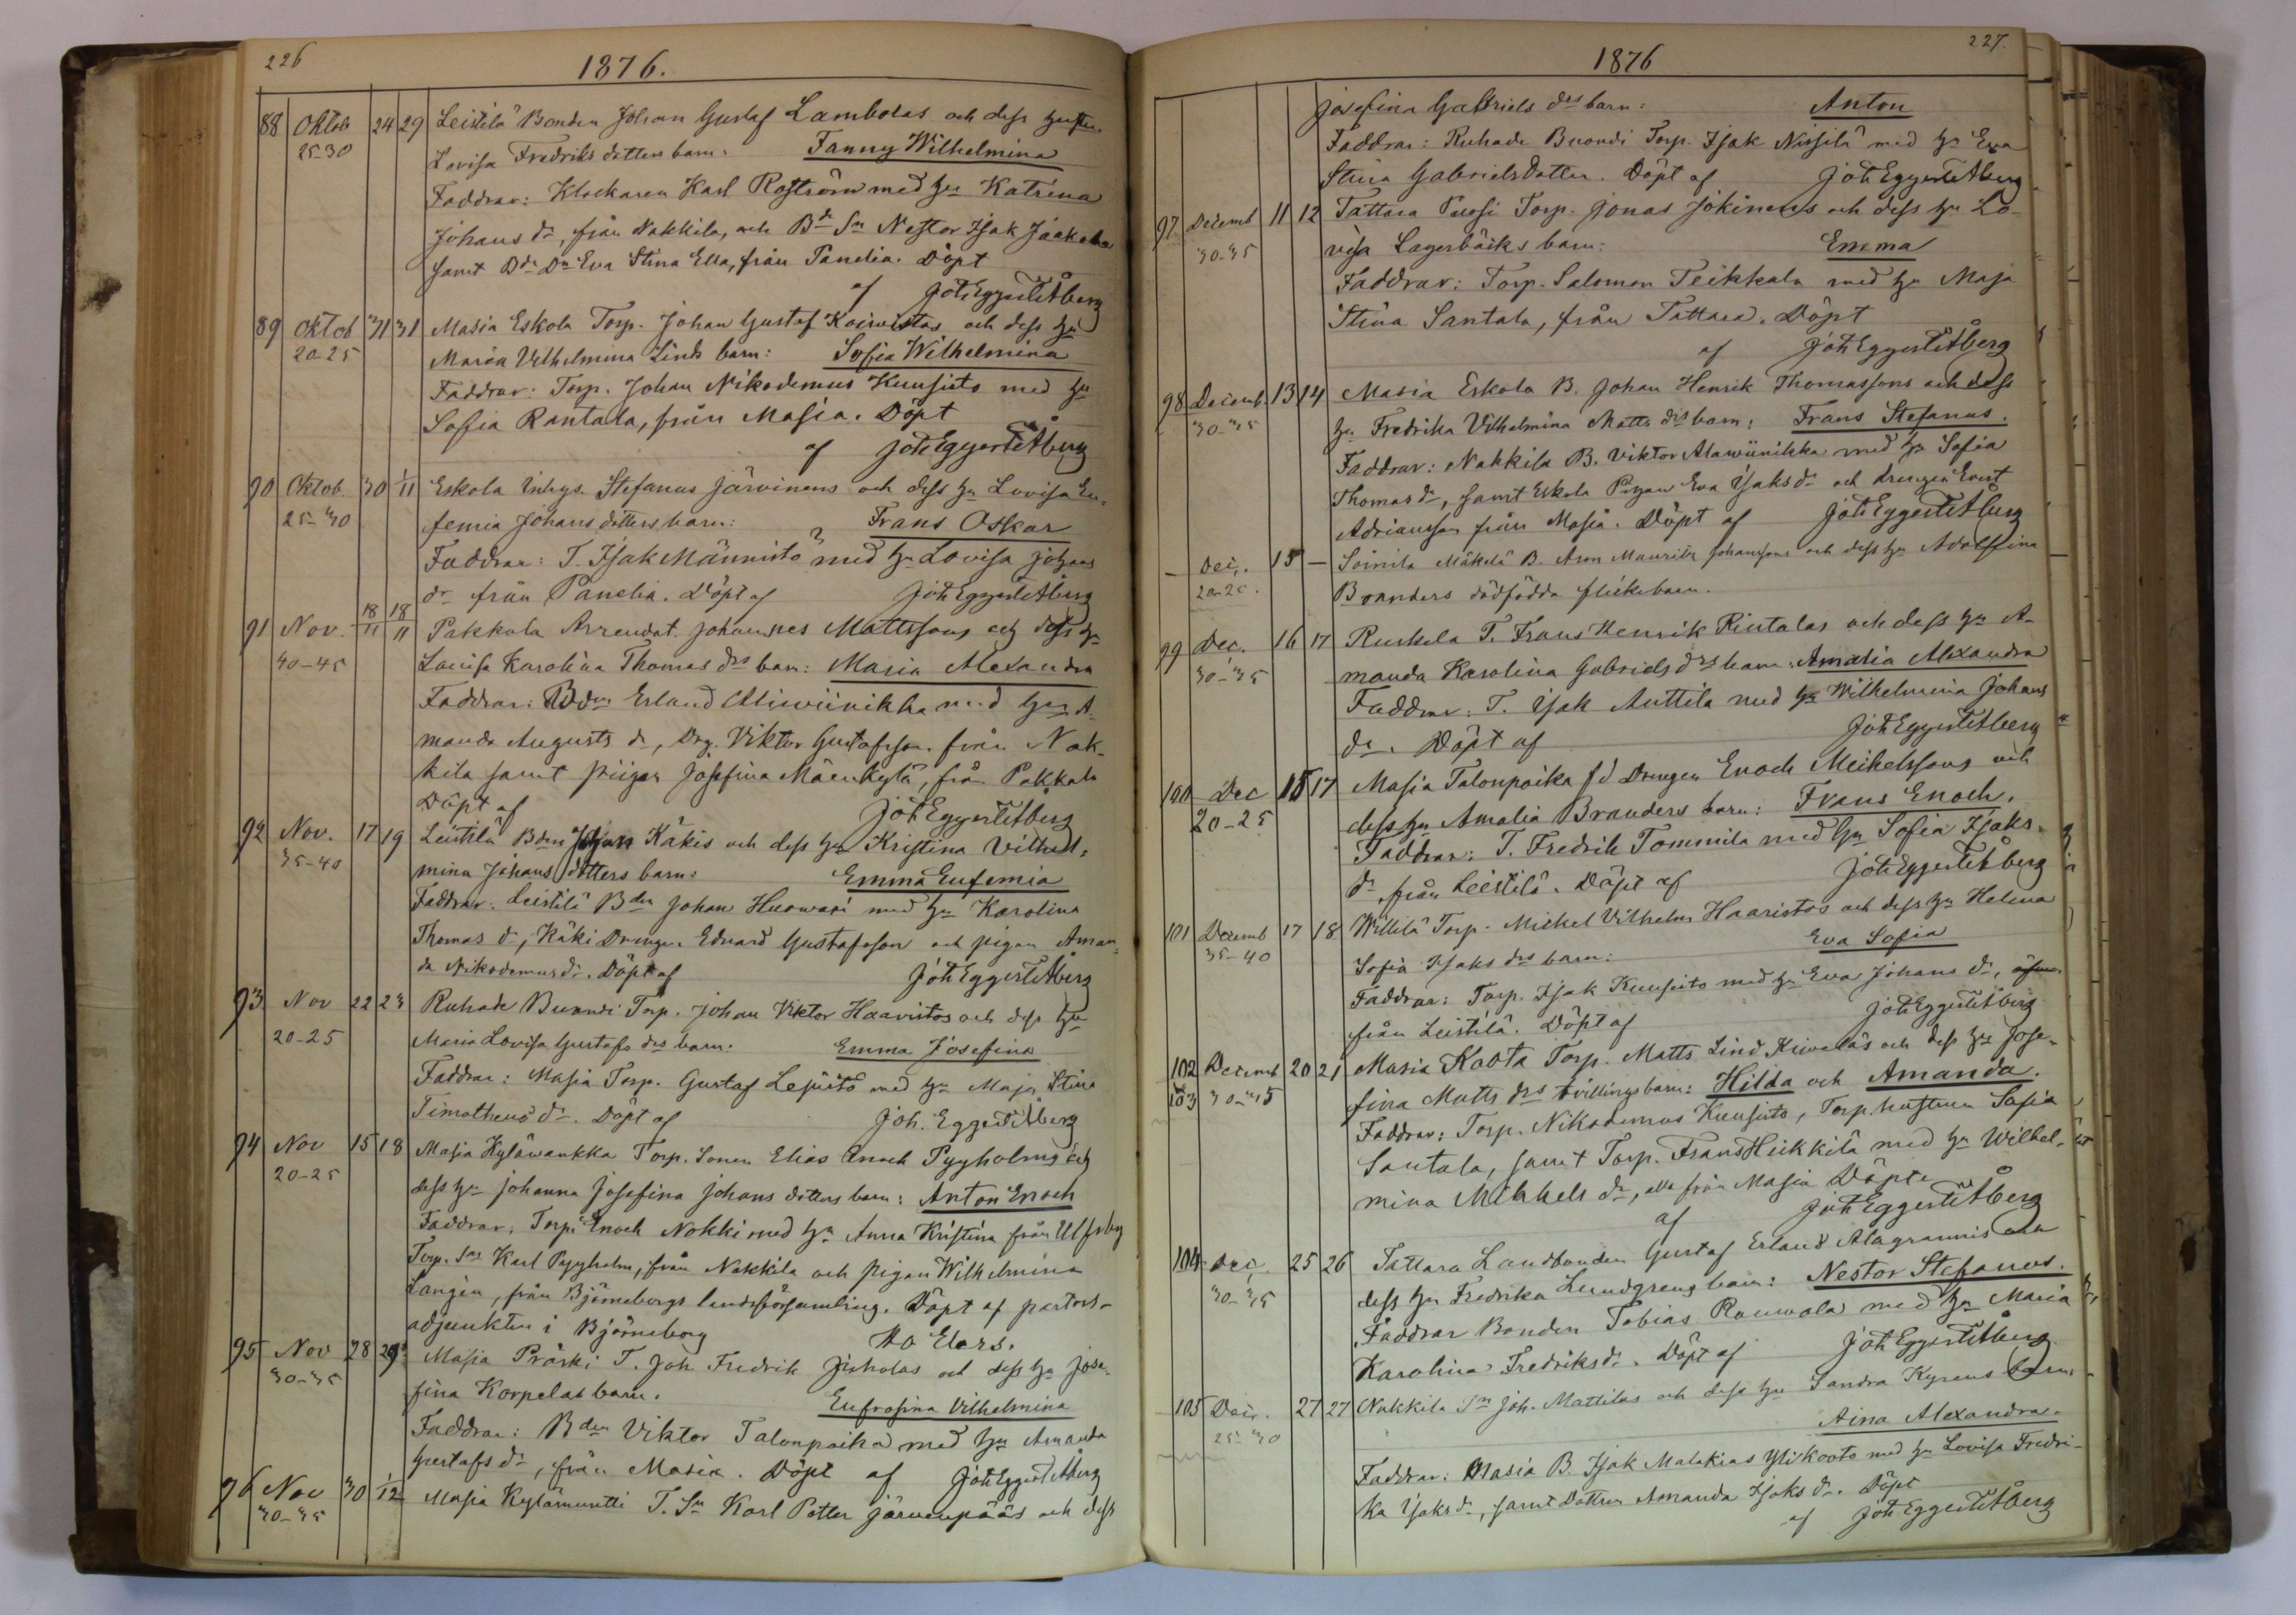 226
1876.
88 Oktob 24 29 Leistilä Bonden Johan Gustaf Lambolas och dess hustru
25-30 Lovisa Fredriks dotters barn. Fanny Wilhelmina
Faddrar: Klockaren Karl Roström med hu Katrina
Johans dr, från Nakkila, och Bde Sn Nestor Isak Jaakola
samt Bde Dn Eva Stina Ella, från Panelia. Döpt
af Joh Eggert Åberg
89 Oktob 31 31 Masia Eskola Torp. Johan Gustaf Koivistos och dess hu
20-25 Maria Vilhelmina Linds barn: Sofia Wilhelmina
Faddrar: Torp. Johan Nikodemus Kuusisto med hu
Sofia Rantala, från Masia. Döpt
af Joh Eggert Åberg
90 Oktob 30 1/11 Eskola Inhys. Stefanus Järvinens och dess hu Lovisa Eu-
25-30 femia Johans dotters barn: Frans Oskar
Faddrar: T. Isak Männistö med hu Lovisa Johans
dr från Panelia. Döpt af Joh Eggert Åberg
91 Nov. 18/11 18/11 Pakkala Arrendat. Johannes Mattssons och dess hu
40-45 Lovisa Karolina Thomas drs barn: Maria Alexandra
Faddrar: Bden Erland Aliwiinikka med hu A-
manda Augusts dr, Drg. Viktor Gustafsson från Nak-
kila samt pigan Josefina Mäenkylä, från Pakkala
Döpt af Joh Eggert Åberg
92 Nov. 17 19 Leistilä Bden Johan Käkis och dess hu Kristina Vilhel-
35-40 mina Johans dotters barn: Emma Eufemia
Faddrar: Leistilä Bden Johan Huowari med hu Karolina
Thomas dr, Käki Drengen Eduard Gustafsson och pigan Aman-
da Nikodemus dr. Döpt af Joh Eggert Åberg
93 Nov 22 23 Ruhade Buondi Torp. Johan Viktor Haavistos och dess hu
20-25 Maria Lovisa Gustafs drs barn: Emma Josefina
Faddrar: Masia Torp. Gustaf Lepistö med hu Maja Stina
Timotheus dr. Döpt af Joh. Eggert Åberg
94 Nov 15 18 Masia Kyläwankka Torp. Sonen Elias Enoch Pyyholms och
20-25 dess hu Johanna Josefina Johans dotters barn: Anton Enoch
Faddrar: Torp. Enoch Nokki med hu Anna Kristina från Ulfsby
Torp. Sn Karl Pyyholm, från Nakkila och pigan Wilhelmina
Langén, från Björneborgs landsförsamling. Döpt af pastors-
adjunkten i Björneborg
95 Nov 28 29 Masia Präski T. Joh Fredrik Juholas och dess hu Jose-
30-35 fina Korpelas barn. Eufrosina Vilhelmina
Faddrar: Bden Viktor Talonpoika med hu Amanda
Gustafs dr, från Masia. Döpt af Joh Eggert Åberg
96 Nov 30 1/12 Masia Kylämuntti T. Sn Karl Petter Järvenpääs och dess
30-35
227.
1876
Josefina Gabriels drs barn: Anton
Faddrar: Ruhade Buondi Torp. Isak Nissilä med hu Eva
Stina Gabrielsdotter. Döpt af Joh Eggert Åberg
97 Decemb 11 12 Tattara Puosi Torp. Jonas Jokinens och dess hu Lo-
30-35 visa Lagerbäcks barn: Emma
Faddrar: Torp. Salomon Teikkala med hu Maja
Stina Santala, från Tattara. Döpt
af Joh Eggert Åberg
98 Decemb. 13 14 Masia Eskola B. Johan Henrik Thomassons och dess
30-35 hu Fredrika Vilhelmina Matts drs barn: Frans Stefanus.
Faddrar: Nakkila B. Viktor Alawiinikka med hu Sofia
Thomas dr, samt Eskola Pigan Eva Isaks dr och drengen Evert
Adriansson från Masia. Döpt af Joh Eggert Åberg
— Dec. 15 — Soinila Mäkelä B. Aron Mauritz Johanssons och dess hu Adolfina
20-25. Branders dödfödda flickebarn.
99 Dec. 16 17 Ruskela T. Frans Henrik Rintalas och dess hu A-
30-35 manda Karolina Gabriels drs barn: Amalia Alexandra
Faddrar: T. Isak Anttila med hu Wilhelmina Johans
dr. Döpt af Joh Eggert Åberg
100 Dec 15 17 Masia Talonpoika f d Drengen Enoch Meikelssons och
20-25 dess hu Amalia Branders barn: Frans Enoch.
Faddrar: T. Fredrik Tommila med hu Sofia Isaks
dr från Leistilä. Döpt af Joh Eggert Åberg
101 Decemb 17 18 Willilä Torp. Mickel Vilhelm Haavistos och dess hu Helena
35-40 Sofia Isaks drs barn: Eva Sofia
Faddrar: Torp. Isak Kuusisto med hu Eva Johans dr,
från Leistilä. Döpt af Joh Eggert Åberg
102 Decemb 20 21 Masia Kaota Torp. Matts Lind Kiweläs och dess hu Jose-
103 30-35 fina Matts drs tvillingsbarn: Hilda och Amanda.
Faddrar: Torp. Nikodemus Kuusisto, Torp. hustrun Sofia
Santala, samt Torp. Frans Heikkilä med hu Wilhel-
mina Mikkels dr, alla från Masia Döpte
af Joh Eggert Åberg
104 Dec. 25 26 Tattara Landbonden Gustaf Erland Alagrannis och
30-35 dess hu Fredrika Lundgrens barn: Nestor Stefanus.
Faddrar Bonden Tobias Rauwola med hu Maria
Karolina Fredriks dr. Döpt af Joh Eggert Åberg
105 Dec. 27 27 Nakkila Tn Joh. Mattilas och dess hu Sandra Kyrens barn
25-30 Aina Alexandra.
Faddrar: Masia B. Isak Malakias Ylikooto med hu Lovisa Fredri-
ka Isaks dr, samt Dottren Amanda Isaks dr. Döpt
af Joh Eggert Åberg